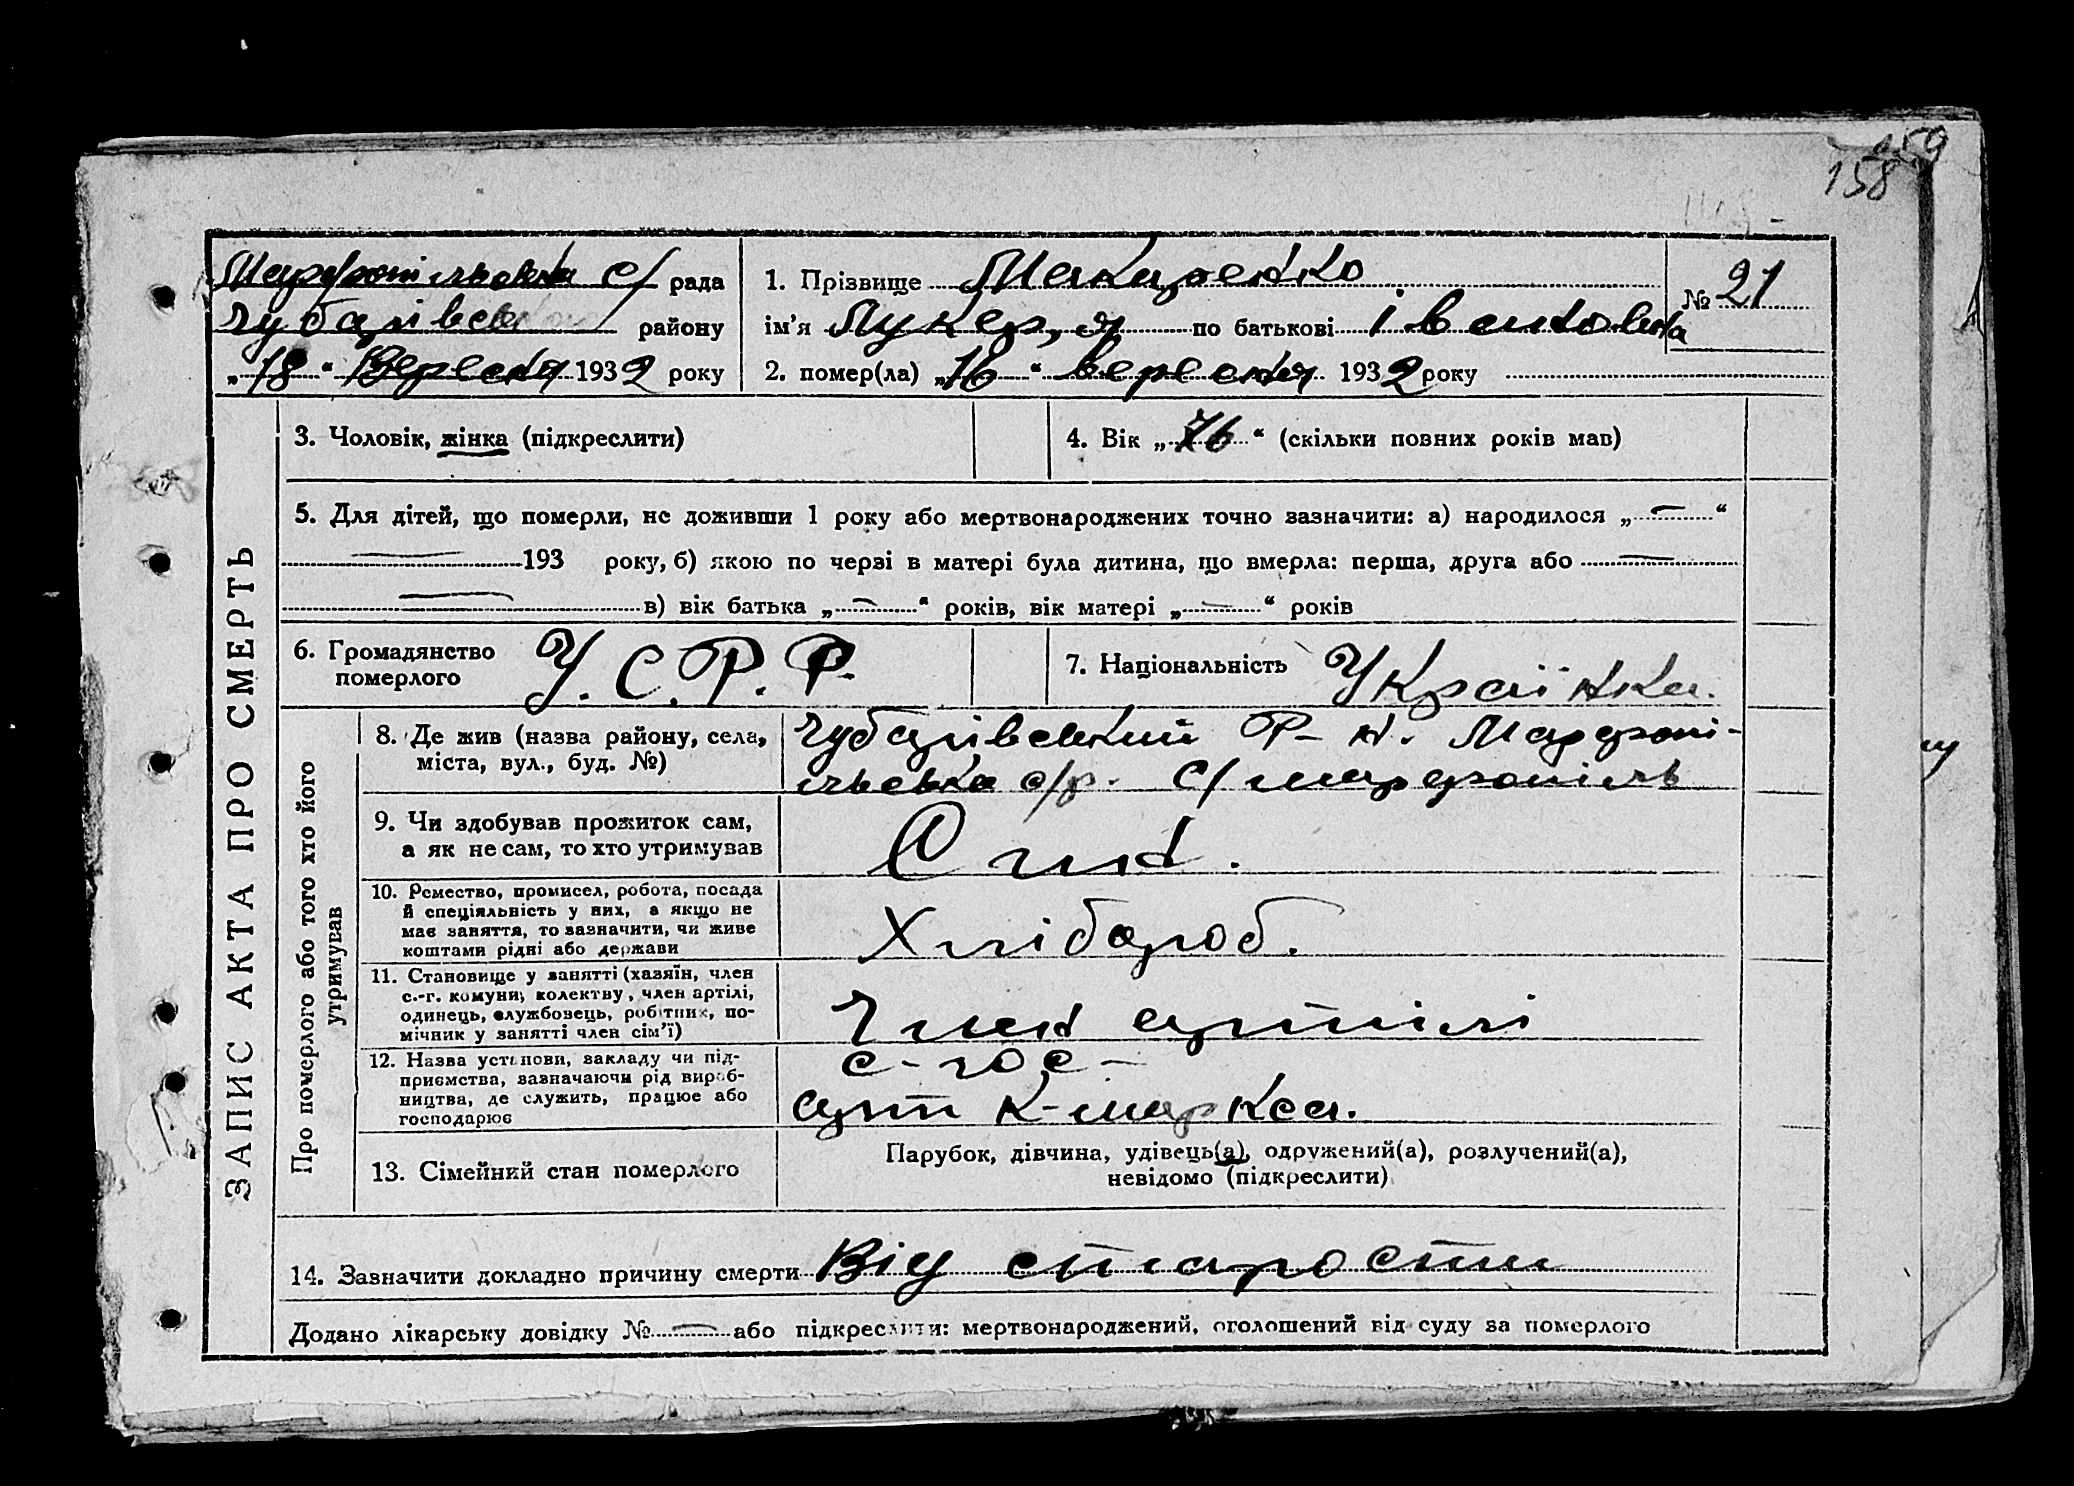 159
158
Марфопільська с/ рада
Чубарівськ району
„18“ Вересня 1932 року
1. Прізвище Макаренко
№ 21
ім'я Лукер,я по батькові Івановна
2. помер(ла) „16“ вересня 1932 року
ЗАПИС АКТА ПРО СМЕРТЬ
3. Чоловік, жінка (підкреслити)
4. Вік „76“ (скільки повних років мав)
5. Для дітей, що померли, не доживши 1 року або мертвонароджених точно зазначити: а) народилося „—“
— 193 року, б) якою по черзі в матері була дитина, що вмерла: перша, друга або —
— в) вік батька „—“ років, вік матері „—“ років
6. Громадянство
померлого
У.С.Р.Р.
7. Національність Українка.
Про померлого або того хто його
утримував
8. Де жив (назва району, села,
міста, вул., буд. №)
Чубарівський Р-н. Марфопі-
льська с/р. С/ марфопіль
9. Чи здобував прожиток сам,
а як не сам, то хто утримував
Син.
10. Ремество, промисел, робота, посада
й спеціяльність у них, а якщо не
має заняття, то зазначити, чи живе
коштами рідні або держави
Хлібороб.
11. Становище у занятті (хазяїн, член
с.-г. комуни, колективу, член артілі,
одинець, службовець, робітник, по-
мічник у занятті член сім'ї)
Член артілі
12. Назва установи, закладу чи під-
приємства, зазначаючи рід вироб-
ництва, де служить, працює або
господарює
с-гос-
арт К-маркса.
13. Сімейний стан померлого
Парубок, дівчина, удівець(а), одружений(а), розлучений(а),
невідомо (підкреслити)
14. Зазначити докладно причину смерти Від старости
Додано лікарську довідку № — або підкреслити: мертвонароджений, оголошений від суду за померлого